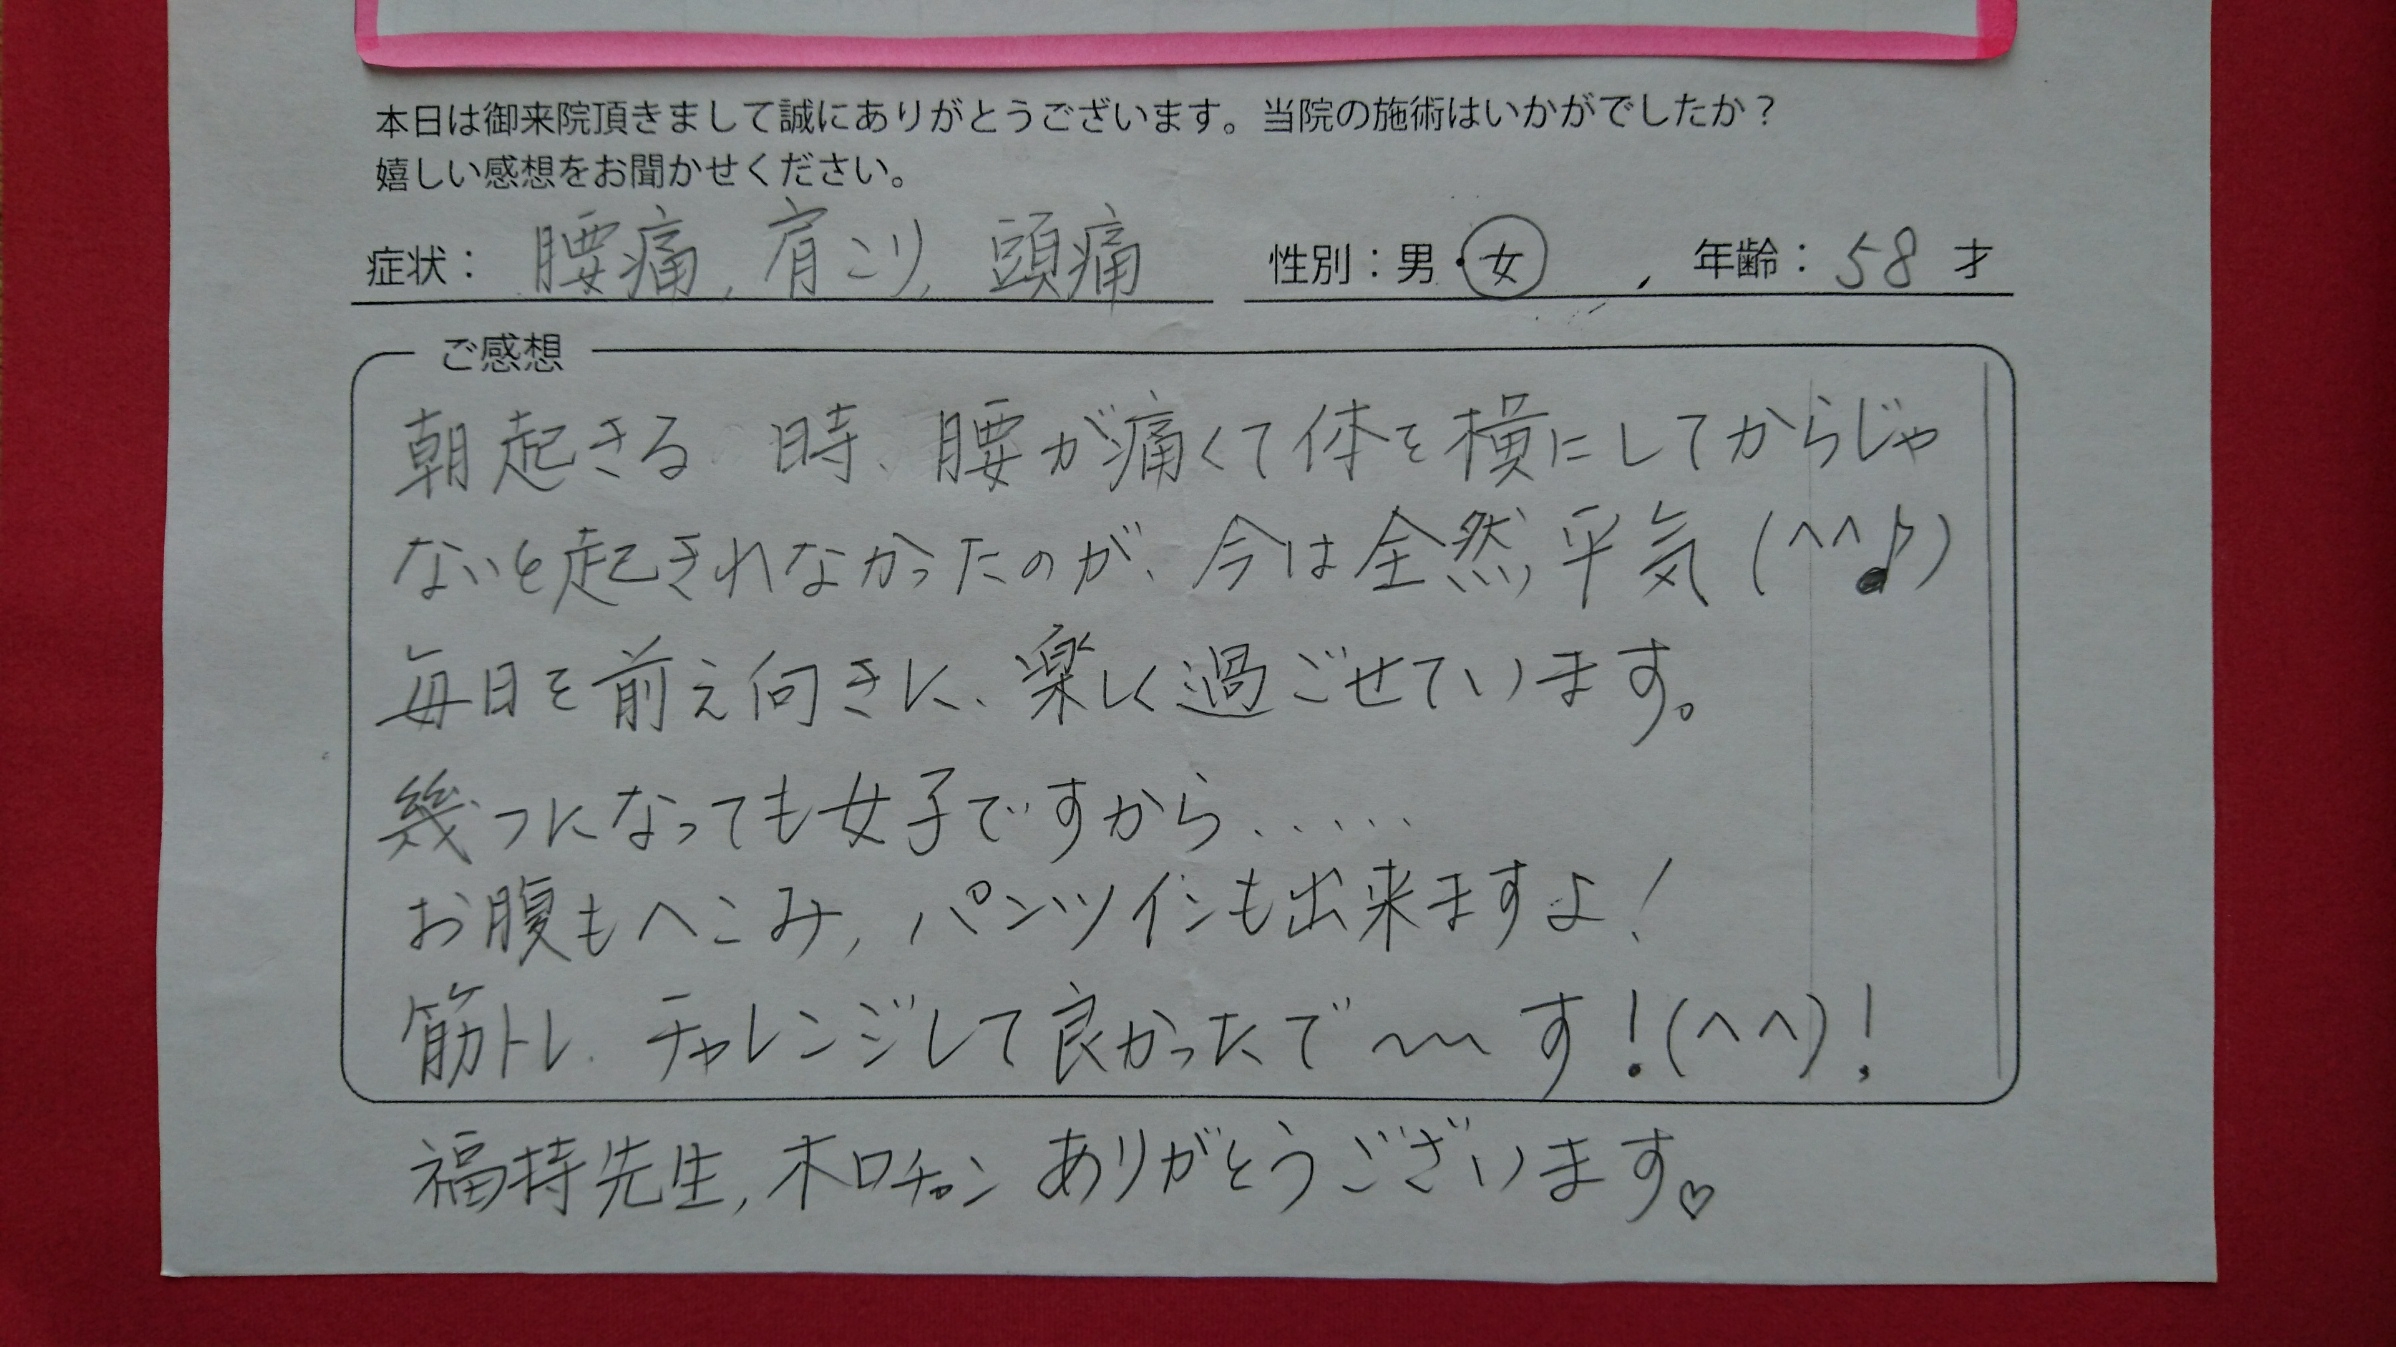 本日は御来院頂きまして誠にありがとうございます。当院の施術はいかがでしたか？
嬉しい感想をお聞かせください。
症状： 腰痛, 肩こり, 頭痛 性別：男・女 年齢：58 才
ご感想
朝起きる 時、腰が痛くて体を横にしてからじゃ
ないと起きれなかったのが、今は全然平気 (^^♪)
毎日を前え向きに、楽しく過ごせています。
幾つになっても女子ですから……
お腹もへこみ, パンツインも出来ますよ!
筋トレ チャレンジして良かったで〜〜す!(^^)!
福持先生, ホロチャン ありがとうございます♡